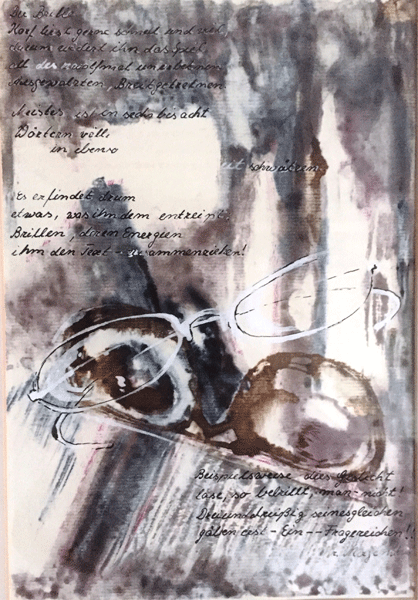 Die Brille
Korf liest gerne schnell und viel,
darum widert ihn das Spiel
all des zwölfmal unerbetnen
Ausgewalzten, Breitgetretnen.
Meistes ist in sechs bis acht
Wörtern voll
in ebenso
schwätzen
Es erfindet drum
etwas, was ihn dem entreint:
Brillen, deren Energien
ihm den Text zusammenziehen!
Beispielsweise dies Gedicht
läse, so bebrillt, man - nicht!
Dreiunddreißig seinesgleichen
gäben erst - Ein -- Fragezeichen!!